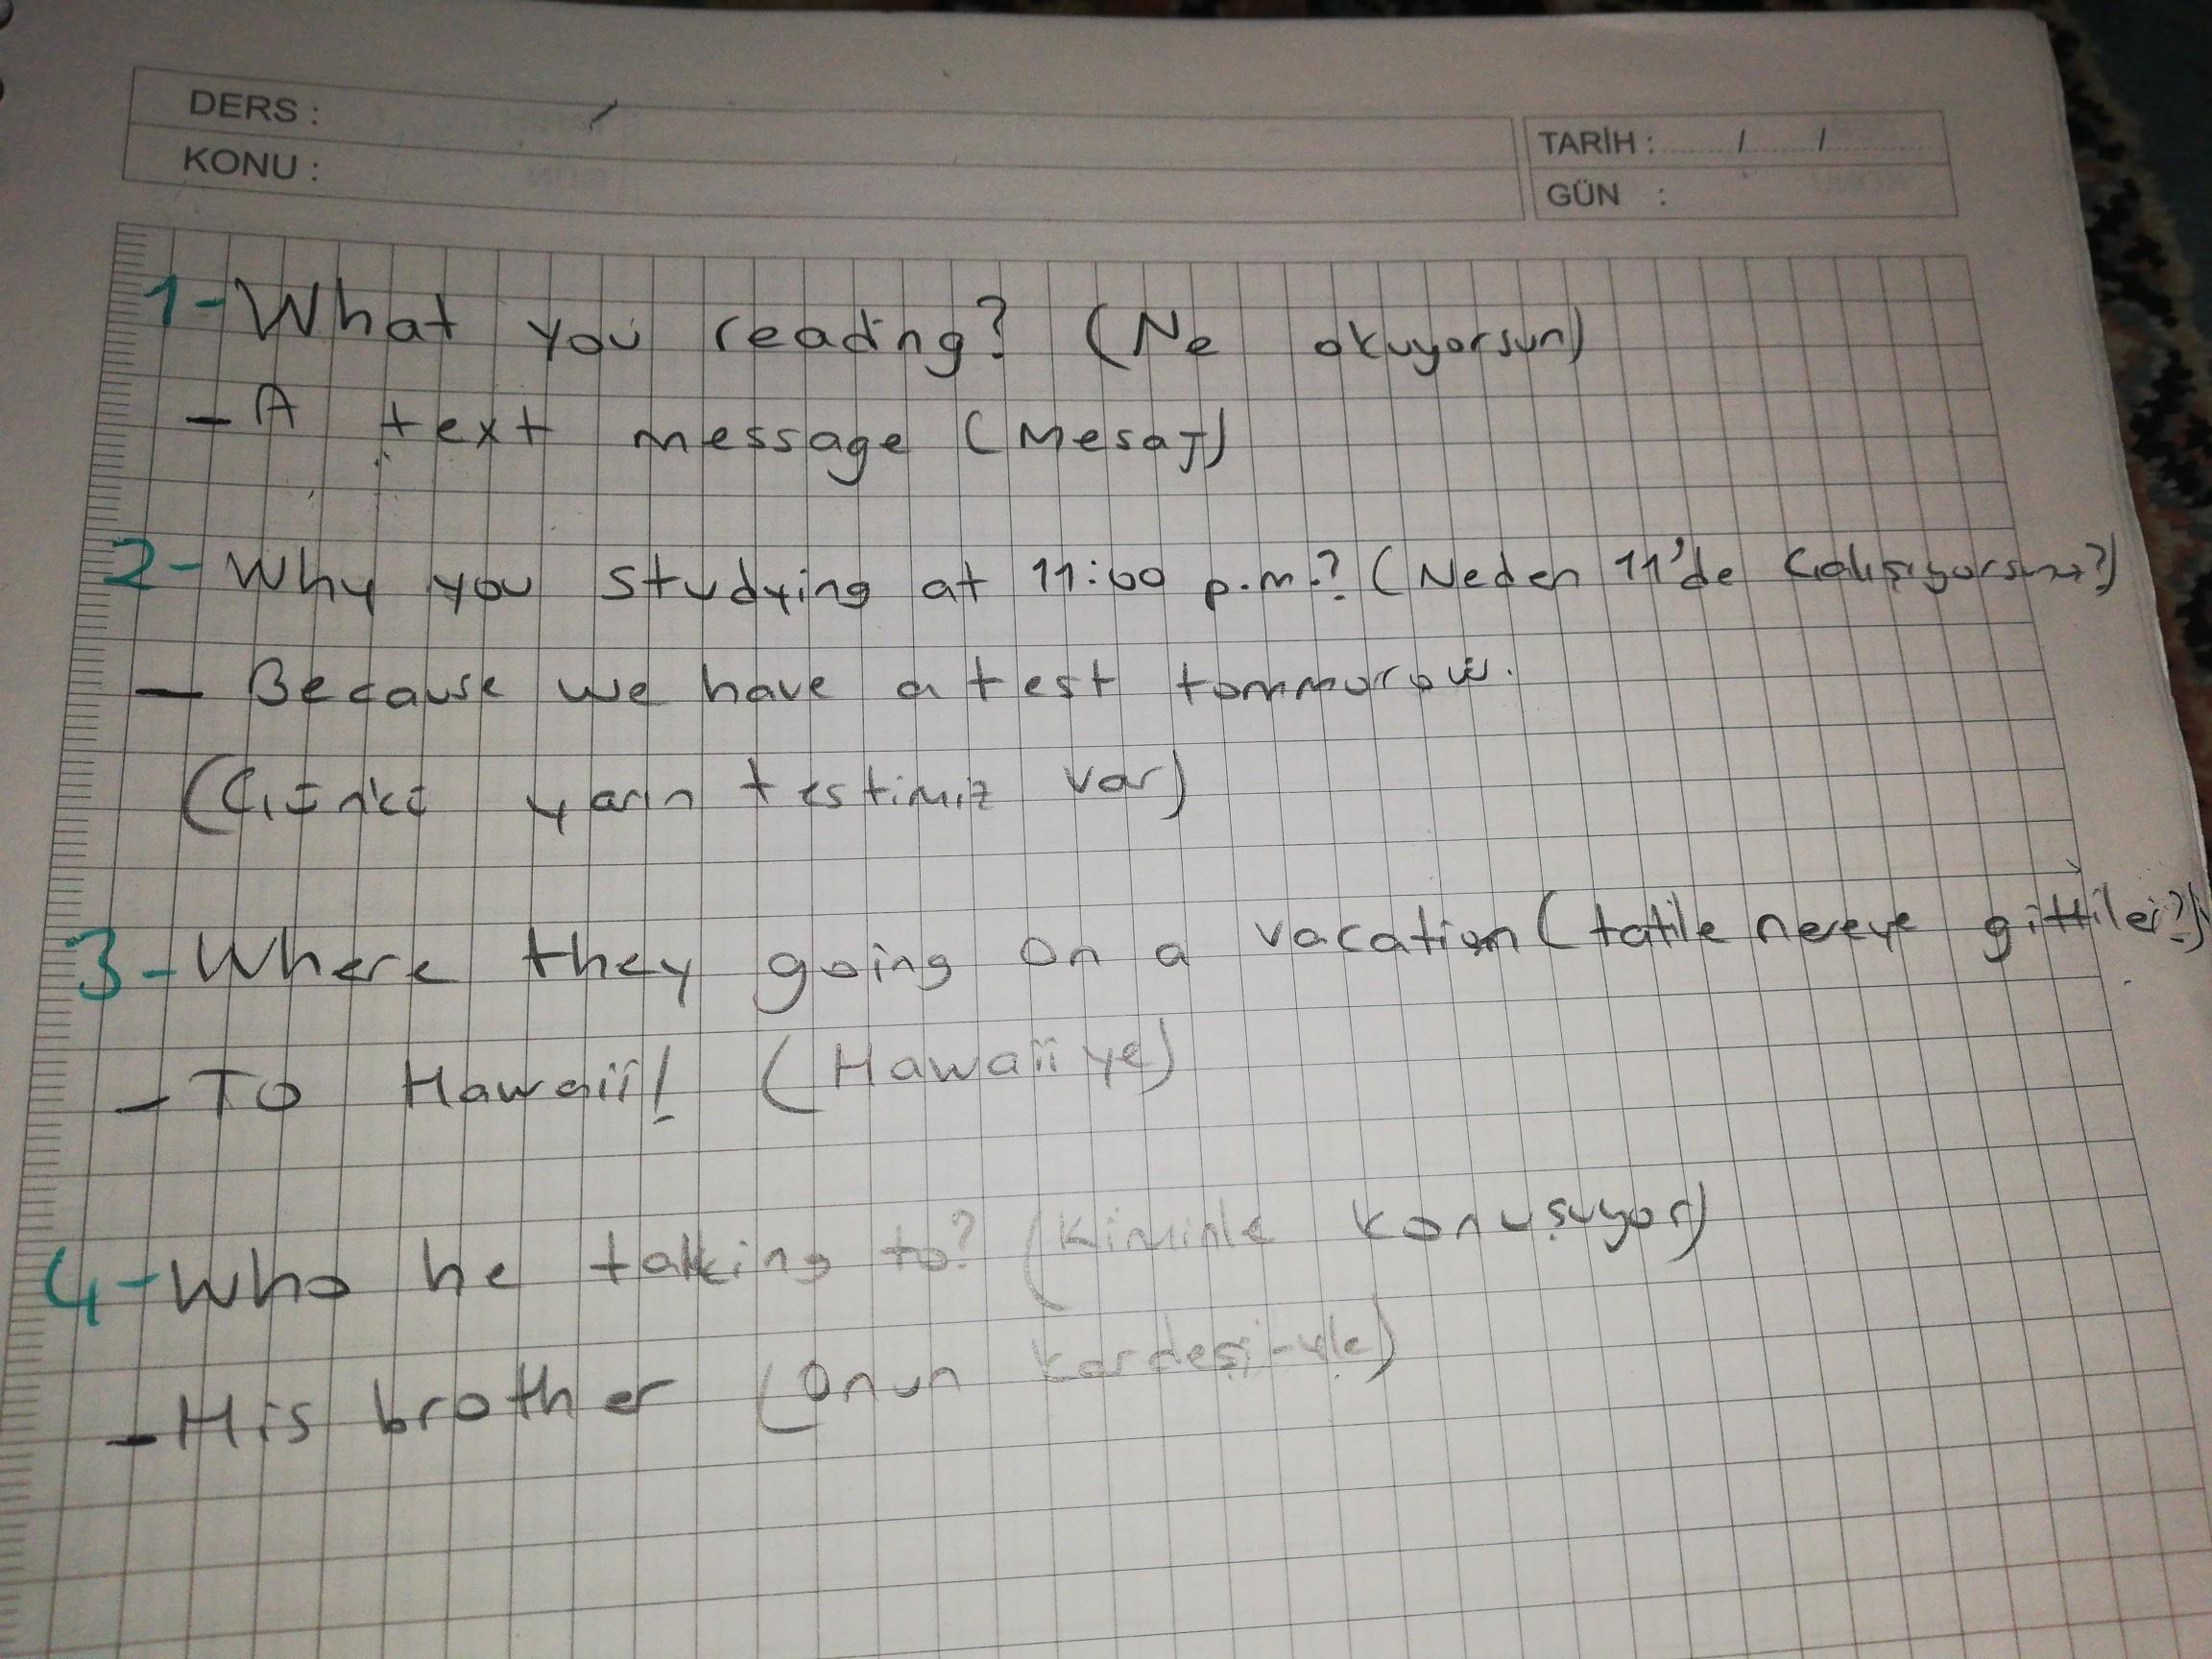 DERS :
KONU :
TARİH : / /
GÜN :
1- What you reading? (Ne okuyorsun)
- A text message (Mesaj)
2- Why you studying at 11:00 p.m.? (Neden 11'de
- Because we have a test tommorow.
(Çünkü yarın testimiz var)
3- Where they going on a vacation (tatile nereye gittiler?)
- To Hawaii! (Hawaii ye)
4- Who he talking to? (Kiminle konuşuyor)
- His brother (Onun kardeşi-yle)